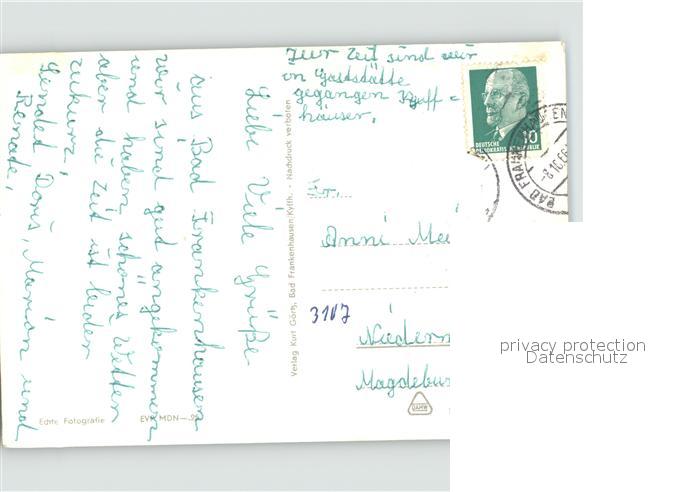 Zur Zeit sind wir
in Gaststätte
gegangen Kyff =
häuser.
Liebe Viele Grüße
aus Bad Frankenhausen
wir sind gut angekommen
und haben schönes Wetter
aber die Zeit ist leider
zukurz,
Sendet Doris, Marion und
Renate,
Verlag Kurt Görtz, Bad Frankenhausen/Kyffh. - Nachdruck verboten
DEUTSCHE
DEMOKRATISCHE REPUBLIK
10
BAD FRANKENHAUSEN
Fr.
Anni
3107
Magdebur
privacy protection
Datenschutz
DAMW
Echte Fotografie EVP MDN